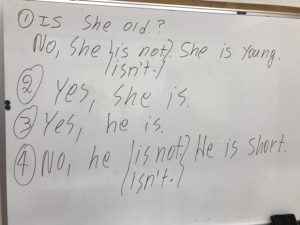 ① Is she old?
No, she (is not) She is young.
(isn't.)
② Yes, she is.
③ Yes, he is.
④ No, he (is not) He is short.
(isn't.)